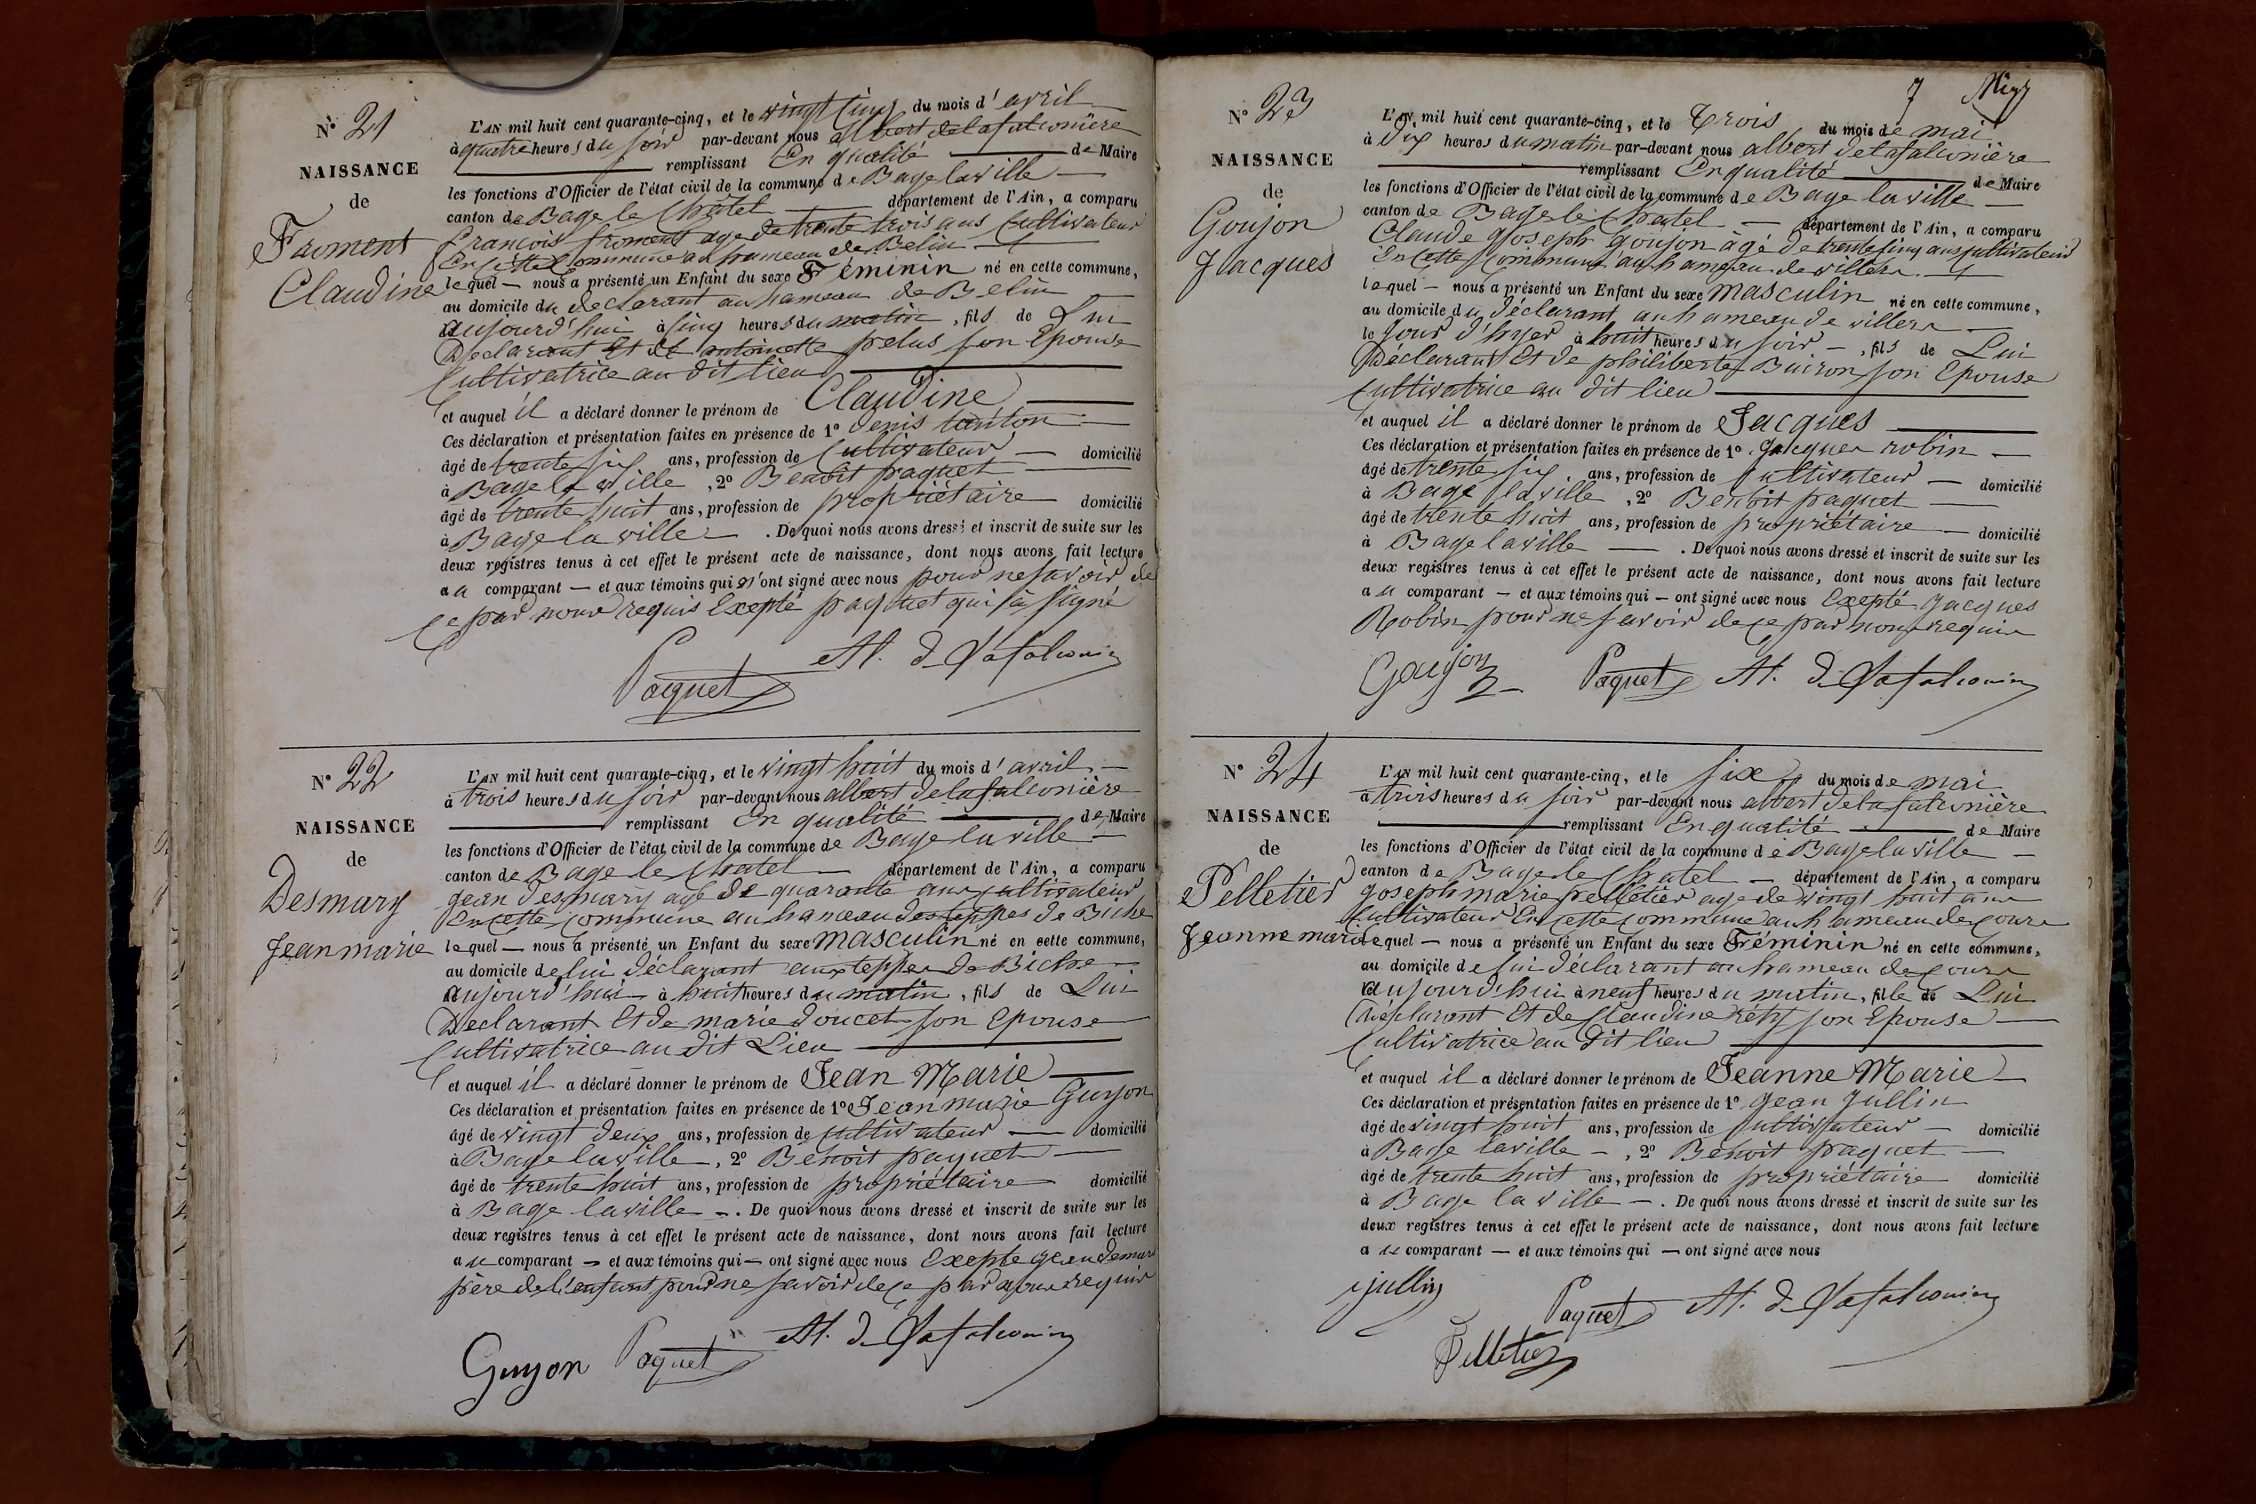 N° 21
NAISSANCE
de
Froment
Claudine
L'AN mil huit cent quarante-cinq, et le vingt cinq du mois d'avril
à quatre heures du soir par-devant nous albert delafalconière
remplissant En qualité de Maire
les fonctions d'Officier de l'état civil de la commune de Bage la ville
canton de Bage le Chatel département de l'Ain, a comparu
francois froment age de trente trois ans Cultivateur
En Cette Commune au hameau de Belin
lequel nous a présenté un Enfant du sexe Féminin né en cette commune,
au domicile du declarant au hameau de Belin
aujourd'hui à cinq heures du matin, fils de Lui
Declarant Et de antoinette pelus son Epouse
Cultivatrice au dit lieu
et auquel il a déclaré donner le prénom de Claudine
Ces déclaration et présentation faites en présence de 1° Denis tanton
âgé de trente six ans, profession de Cultivateur domicilié
à Bage la ville, 2° Benoit paquet
âgé de trente huit ans, profession de propriétaire domicilié
à Bage la ville. De quoi nous avons dressé et inscrit de suite sur les
deux registres tenus à cet effet le présent acte de naissance, dont nous avons fait lecture
au comparant — et aux témoins qui n'ont signé avec nous pour ne savoir de
ce par nous requis Excepté paquet qui à signé
Paquet Al. d. Lafalconière
N° 22
NAISSANCE
de
Desmary
Jean marie
L'AN mil huit cent quarante-cinq, et le vingt huit du mois d'avril
à trois heures du soir par-devant nous albert delafalconière
remplissant En qualité de Maire
les fonctions d'Officier de l'état civil de la commune de Bage la ville
canton de Bage le Chatel département de l'Ain, a comparu
jean desmary agé de quarante ans cultivateur
En cette commune au hameau des teppes de Biche
lequel nous a présenté un Enfant du sexe Masculin né en cette commune,
au domicile de lui déclarant aux teppes de Biche
aujourd'hui à huit heures du matin, fils de Lui
Declarant Et de marie doucet son Epouse
Cultivatrice au dit Lieu
et auquel il a déclaré donner le prénom de Jean Marie
Ces déclaration et présentation faites en présence de 1° Jean marie Guyon
âgé de vingt deux ans, profession de cultivateur domicilié
à Bage la ville, 2° Benoit paquet
âgé de trente huit ans, profession de propriétaire domicilié
à Bage la ville. De quoi nous avons dressé et inscrit de suite sur les
deux registres tenus à cet effet le présent acte de naissance, dont nous avons fait lecture
au comparant — et aux témoins qui — ont signé avec nous Excepte jean demary
père de l'enfant pour ne savoir de ce par nous requis
Guyon Paquet Al. d. Lafalconière
7
N° 23
NAISSANCE
de
Goujon
Jacques
L'AN mil huit cent quarante-cinq, et le Trois du mois de mai
à dix heures du matin par-devant nous albert delafalconière
remplissant En qualité de Maire
les fonctions d'Officier de l'état civil de la commune de Bage la ville
canton de Bage le Chatel département de l'Ain, a comparu
Claude joseph goujon àgé de trente cinq ans cultivateur
En Cette Commune au hameau de villers
lequel — nous a présenté un Enfant du sexe Masculin né en cette commune,
au domicile du déclarant au hameau de villers
le jour d'hyer à huit heures du soir, fils de Lui
Déclarant Et de philiberte Buiron son Epouse
cultivatrice au dit lieu
et auquel il a déclaré donner le prénom de Jacques
Ces déclaration et présentation faites en présence de 1° Jacques robin
âgé de trente six ans, profession de cultivateur domicilié
à Bage la ville, 2° Benoit paquet
âgé de trente huit ans, profession de propriétaire domicilié
à Bage la ville. De quoi nous avons dressé et inscrit de suite sur les
deux registres tenus à cet effet le présent acte de naissance, dont nous avons fait lecture
au comparant — et aux témoins qui — ont signé avec nous Excepté Jacques
Robin pour ne savoir de ce par nous requis
Goujon Paquet Al. d. Lafalconière
N° 24
NAISSANCE
de
Pelletier
Jeanne marie
L'AN mil huit cent quarante-cinq, et le six du mois de mai
à trois heures du soir par-devant nous albert delafalconière
remplissant En qualité de Maire
les fonctions d'Officier de l'état civil de la commune de Bage la ville
canton de Bage le Chatel département de l'Ain, a comparu
joseph marie pelletier age de vingt huit ans
Cultivateur En cette commune au hameau de cours
lequel — nous a présenté un Enfant du sexe Féminin né en cette commune,
au domicile de lui déclarant au hameau de cours
aujourd'hui à neuf heures du matin, fille de Lui
Déclarant Et de Claudine rety son Epouse
Cultivatrice au dit lieu
et auquel il a déclaré donner le prénom de Jeanne Marie
Ces déclaration et présentation faites en présence de 1° jean Jullin
âgé de vingt huit ans, profession de cultivateur domicilié
à Bage la ville, 2° Benoit paquet
âgé de trente huit ans, profession de propriétaire domicilié
à Bage la ville. De quoi nous avons dressé et inscrit de suite sur les
deux registres tenus à cet effet le présent acte de naissance, dont nous avons fait lecture
au comparant — et aux témoins qui — ont signé avec nous
jullin Paquet Al. d. Lafalconière
Pelletier